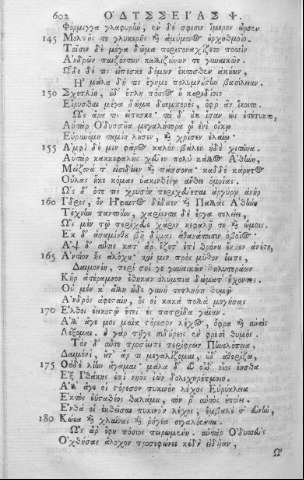 602 ΟΔΥΣΣΕΙΑΣ Ψ.
Φόρμιγγα γλαφυρὴν, ἐν δέ σφισιν ἵμερον ὦρσεν
145 Μολπῆς τε γλυκερῆς καὶ ἀμύμονος ὀρχηθμοῖο.
Τοῖσιν δὲ μέγα δῶμα περιστοναχίζετο ποσσὶν
Ἀνδρῶν παιζόντων καλλιζώνων τε γυναικῶν.
Ὧδε δέ τις εἴπεσκε δόμων ἔκτοσθεν ἀκούων,
Ἦ μάλα δή τις ἔγημε πολυμνήστην βασίλειαν.
150 Σχετλίη, οὐδ' ἔτλη πόσιος οὗ κουριδίοιο
Εἴρυσθαι μέγα δῶμα διαμπερὲς, ὄφρ' ἂν ἵκοιτο.
Ὣς ἄρα τις εἴπεσκε· τὰ δ' οὐκ ἴσαν ὡς ἐτέτυκτο.
Αὐτὰρ Ὀδυσσῆα μεγαλήτορα ᾧ ἐνὶ οἴκῳ
Εὐρυνόμη ταμίη λοῦσεν καὶ χρῖσεν ἐλαίῳ·
155 Ἀμφὶ δέ μιν φᾶρος καλὸν βάλεν ἠδὲ χιτῶνα.
Αὐτὰρ κακκεφαλῆς χεῦεν πολὺ κάλλος Ἀθήνη,
Μείζονά τ' εἰσιδέειν καὶ πάσσονα· καδδὲ κάρητος
Οὔλας ἧκε κόμας ὑακινθίνῳ ἄνθει ὁμοίας.
Ὡς δ' ὅτε τις χρυσὸν περιχεύεται ἀργύρῳ ἀνὴρ
160 Ἴδρις, ὃν Ἥφαιστος δέδαεν καὶ Παλλὰς Ἀθήνη
Τέχνην παντοίην, χαρίεντα δὲ ἔργα τελείει,
Ὣς μὲν τῷ περίχευε χάριν κεφαλῇ τε καὶ ὤμοις.
Ἐκ δ' ἀσαμίνθου βῆ δέμας ἀθανάτοισιν ὁμοῖος·
Ἂψ δ' αὖτις κατ' ἄρ' ἕζετ' ἐπὶ θρόνου ἔνθεν ἀνέστη,
165 Ἀντίον ἧς ἀλόχου καί μιν πρὸς μῦθον ἔειπε·
Δαιμονίη, περὶ σοί γε γυναικῶν θηλυτεράων
Κῆρ ἀτέραμνον ἔθηκαν ὀλύμπια δώματ' ἔχοντες.
Οὐ μέν κ' ἄλλη ὧδε γυνὴ τετληότι θυμῷ
Ἀνδρὸς ἀφεσταίη, ὅς οἱ κακὰ πολλὰ μογήσας
170 Ἔλθοι ἐεικοστῷ ἔτεϊ ἐς πατρίδα γαῖαν.
Ἀλλ' ἄγε μοι μαῖα στόρεσον λέχος, ὄφρα καὶ αὐτὸς
Λέξομαι. ἦ γὰρ τῇγε σιδήρεος ἐν φρεσὶ θυμός.
Τὸν δ' αὖτε προσέειπε περίφρων Πηνελόπεια,
Δαιμόνι', οὔτ' ἄρ τι μεγαλίζομαι, οὔτ' ἀθερίζω,
175 Οὐδὲ λίην ἄγαμαι· μάλα δ' εὖ οἶδ' οἷος ἔησθα
Ἐξ Ἰθάκης ἐπὶ νηὸς ἰὼν δολιχηρέτμοιο.
Ἀλλ' ἄγε οἱ στόρεσον πυκινὸν λέχος Εὐρύκλεια
Ἐκτὸς ἐϋσταθέος θαλάμου, τόν ῥ' αὐτὸς ἐποίει.
Ἔνθα οἱ ἐκθεῖσαι πυκινὸν λέχος, ἐμβάλετ' εὐνὴν,
180 Κώεα καὶ χλαίνας καὶ ῥήγεα σιγαλόεντα.
Ὣς ἄρ' ἔφη πόσιος πειρωμένη. αὐτὰρ Ὀδυσσεὺς
Ὀχθήσας ἄλοχον προσεφώνεε κεδν' εἰδυῖαν,
Ὦ